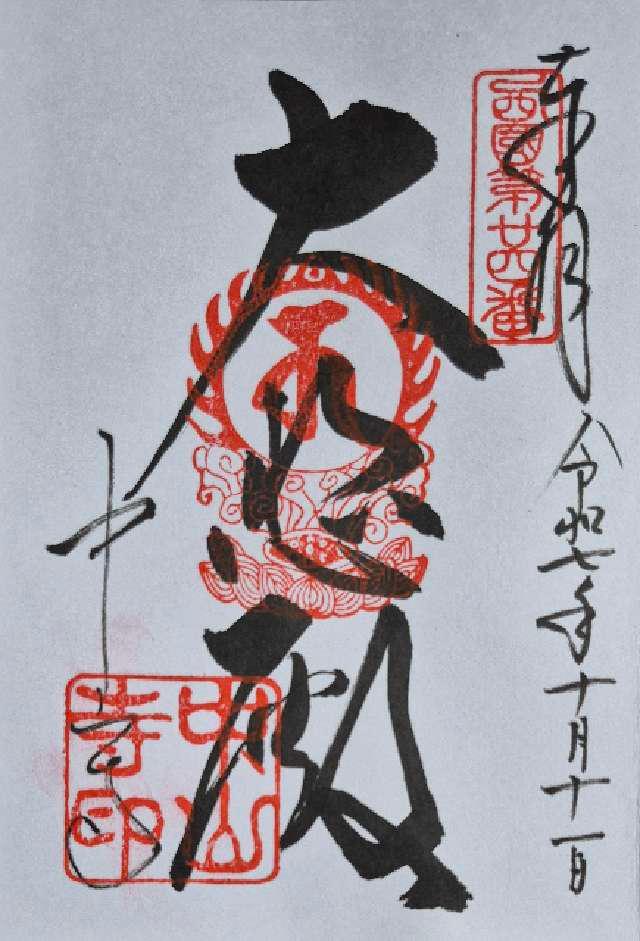 奉拝 令和七年十月十一日
西國第廿四番
大悲殿
中山寺
中山寺印